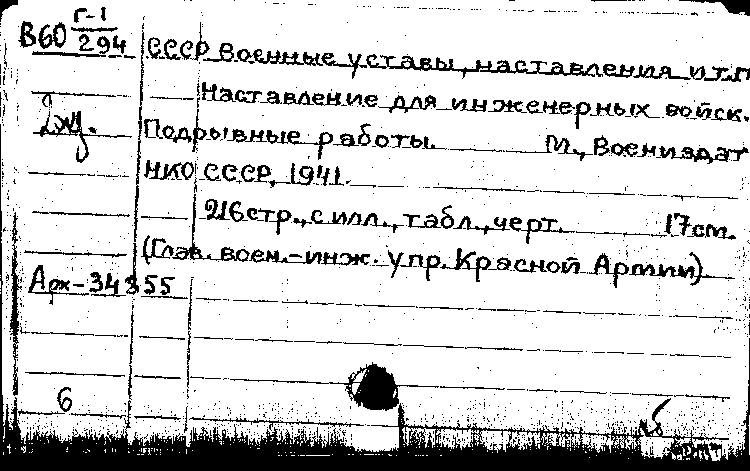 Г-1
В60 294
СССР Военные уставы, наставления и т.п.
Наставление для инженерных войск.
2эк.
Подрывные работы. М., Воениздат
НКО СССР, 1941.
216стр., с илл., табл., черт. 17см.
(Глав. воен.-инж. упр. Красной Армии).
Арх-34355
6